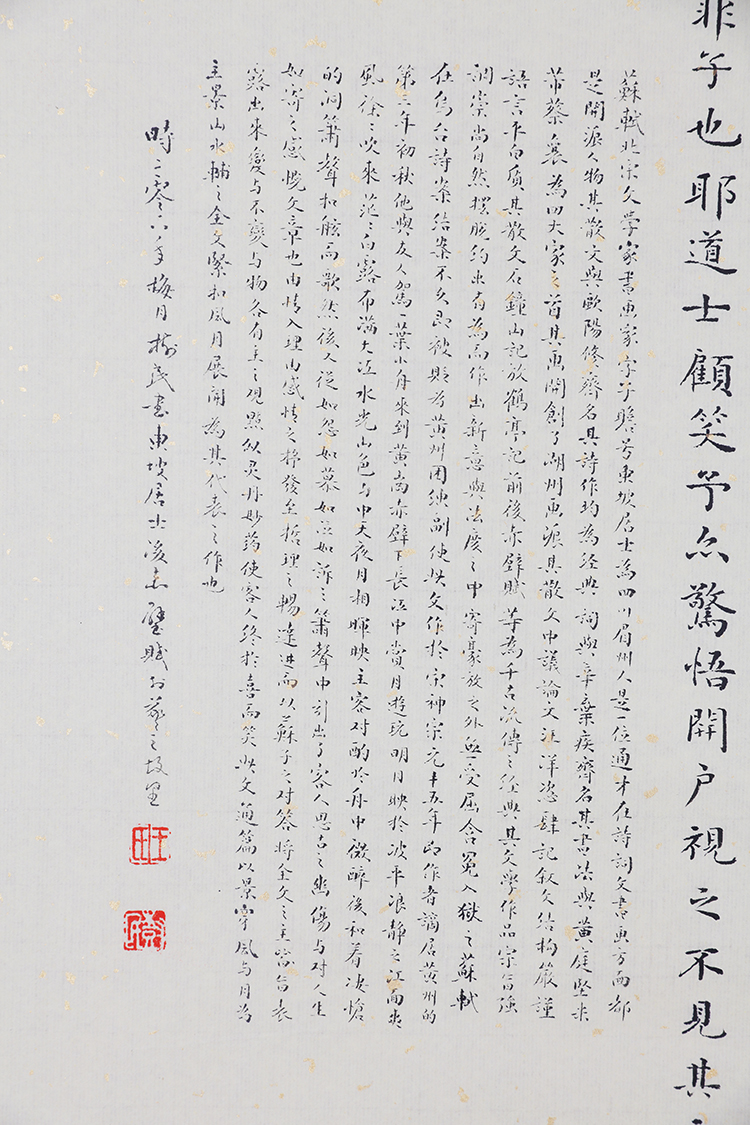 非子也耶道士顧笑予亦驚悟開户視之不見其
蘇軾北宋文学家書画家字子瞻号東坡居士為四川眉州人是一位通才在詩詞文書画方面都
是開源人物其散文與歐陽修齊名其詩作均為经典詞與辛棄疾齊名其書法與黄庭堅米
芾蔡襄為四大家之首其画開創了湖州画派其散文中議論文汪洋恣肆記叙文结构嚴謹
語言平白质其散文石鐘山記放鶴亭記前後赤壁賦等為千古流傳之经典其文學作品宗旨强
調崇尚自然摆脱约束有為而作出新意與法度之中寄豪放之外無受屈含冤入獄之蘇軾
在烏台詩案结案不久即被贬为黄州团练副使此文作於宋神宗元丰五年即作者謫居黄州的
第三年初秋他與友人驾一葉小舟來到黄岗赤壁下長江中賞月遊玩明月映於波平浪静之江面爽
風徐々吹來茫々白露布满大江水光山色与中天夜月相暉映主客对酌於舟中微醉後和着凄愴
的洞簫聲扣舷而歌然後又從如怨如慕如泣如訴之簫聲中引出了客人思古之幽傷与对人生
如寄之感慨文章也由情入理由感情之抒發至哲理之暢達进而以蘇子之对答將全文之主思旨表
露出來變与不變与物各有主之观點似灵丹妙药使客人终於喜而笑此文通篇以景穿風与月為
主景山水輔之全文緊扣風月展開為其代表之作也
時二零一八年梅月樹民書東坡居士後赤壁賦於之故里